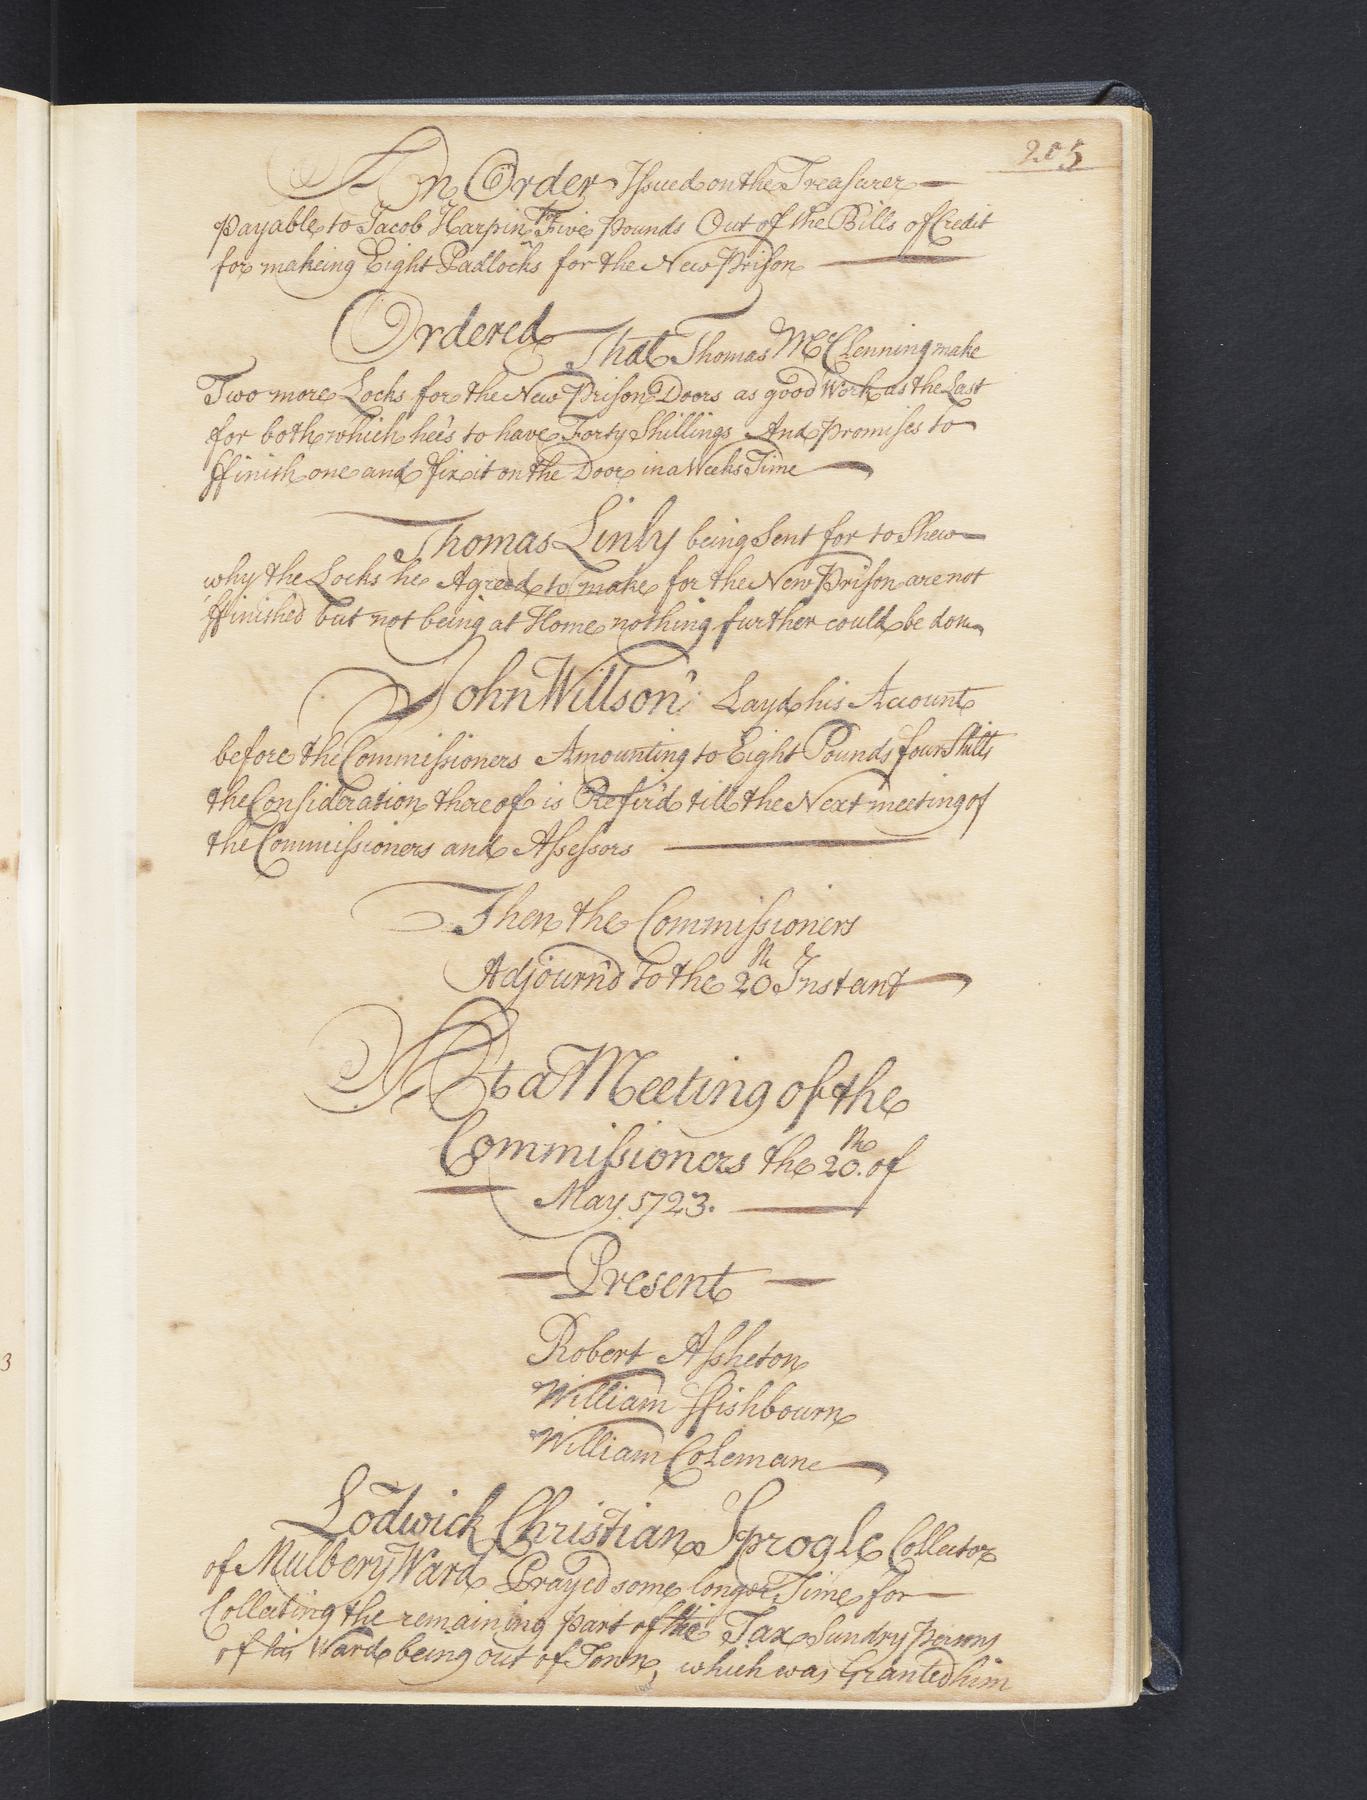 205
An Order Issued on the Treasurer
payable to Jacob Harpin for Five pounds Out of the Bills of Credit
for makeing Eight Padlocks for the New Prison
Ordered That Thomas McClenning make
Two more Locks for the New Prison Doors as good Work as the Last
for both which hee's to have Forty Shillings And promises to
ffinish one and fix it on the Door in a Weeks Time
Thomas Linly being Sent for to Shew
why the Locks he Agreed to make for the New Prison are not
ffinished but not being at Home nothing further could be don
John Willson Layd his Account
before the Commissioners Amounting to Eight Pounds four Shills
the Consideration thereof is Refir'd till the Next meeting of
the Commissioners and Assessors
Then the Commissioners
Adjourn'd to the 20th Instant
At a Meeting of the
Commissioners the 20th of
May 1723.
Present
Robert Assheton
William ffishbourn
William Colemane
Lodwick Christian Sprogle Collector
of Mulbery Ward Prayed some longer Time for
Collecting the remaining part of the Tax Sundry persons
of his Ward being out of Town, which was Granted him
3